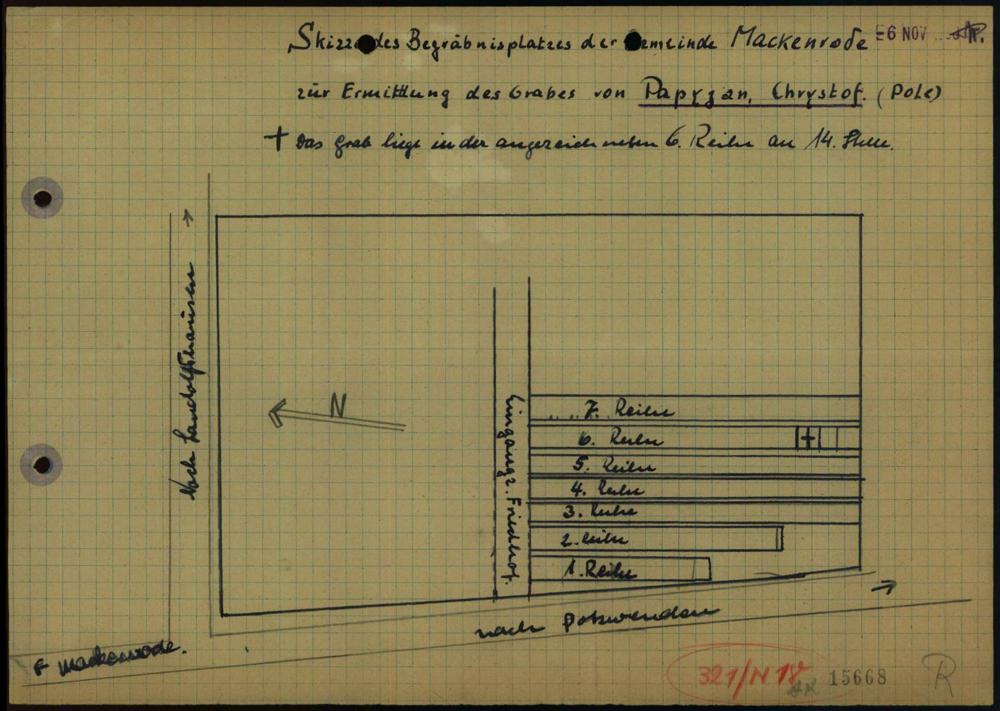 Skizze des Begräbnisplatzes der Gemeinde Mackenrode
6 NOV
zur Ermittlung des Grabes von Paprzan, Chrystof. (Pole)
† Das Grab liegt in der angezeichneten 6. Reihe an 14. Stelle.
Nach Landolfshausen
N
Eingang z. Friedhof.
7. Reihe
6. Reihe
5. Reihe
4. Reihe
3. Reihe
2. Reihe
1. Reihe
nach Potzwenden
Mackenrode.
321/N 18
15668
R